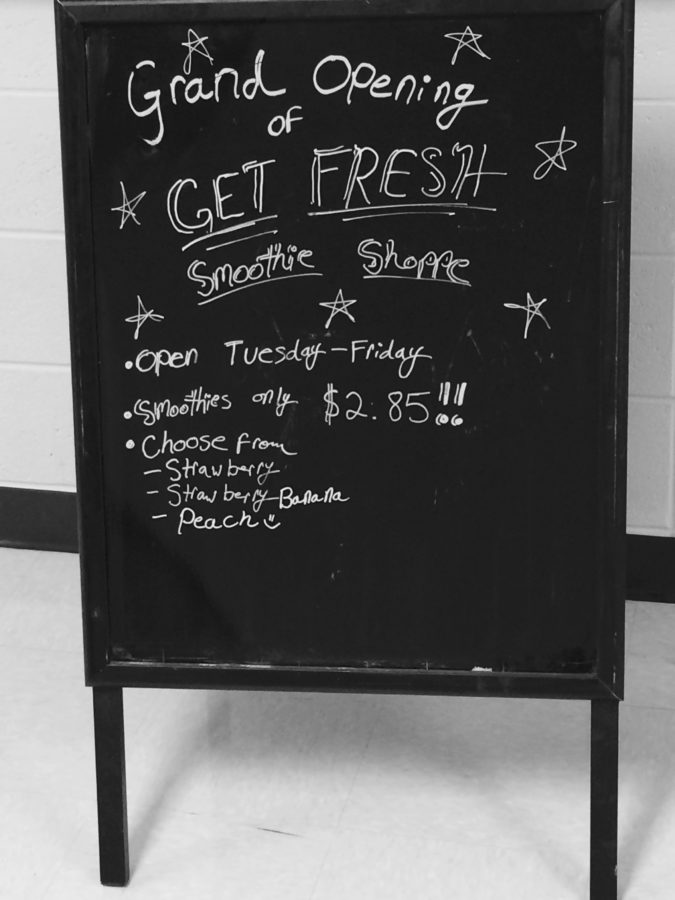 Grand Opening
of
GET FRESH
Smoothie Shoppe
• Open Tuesday - Friday
• Smoothies only $2.85!!!
• Choose from
- Strawberry
- Strawberry-Banana
- Peach